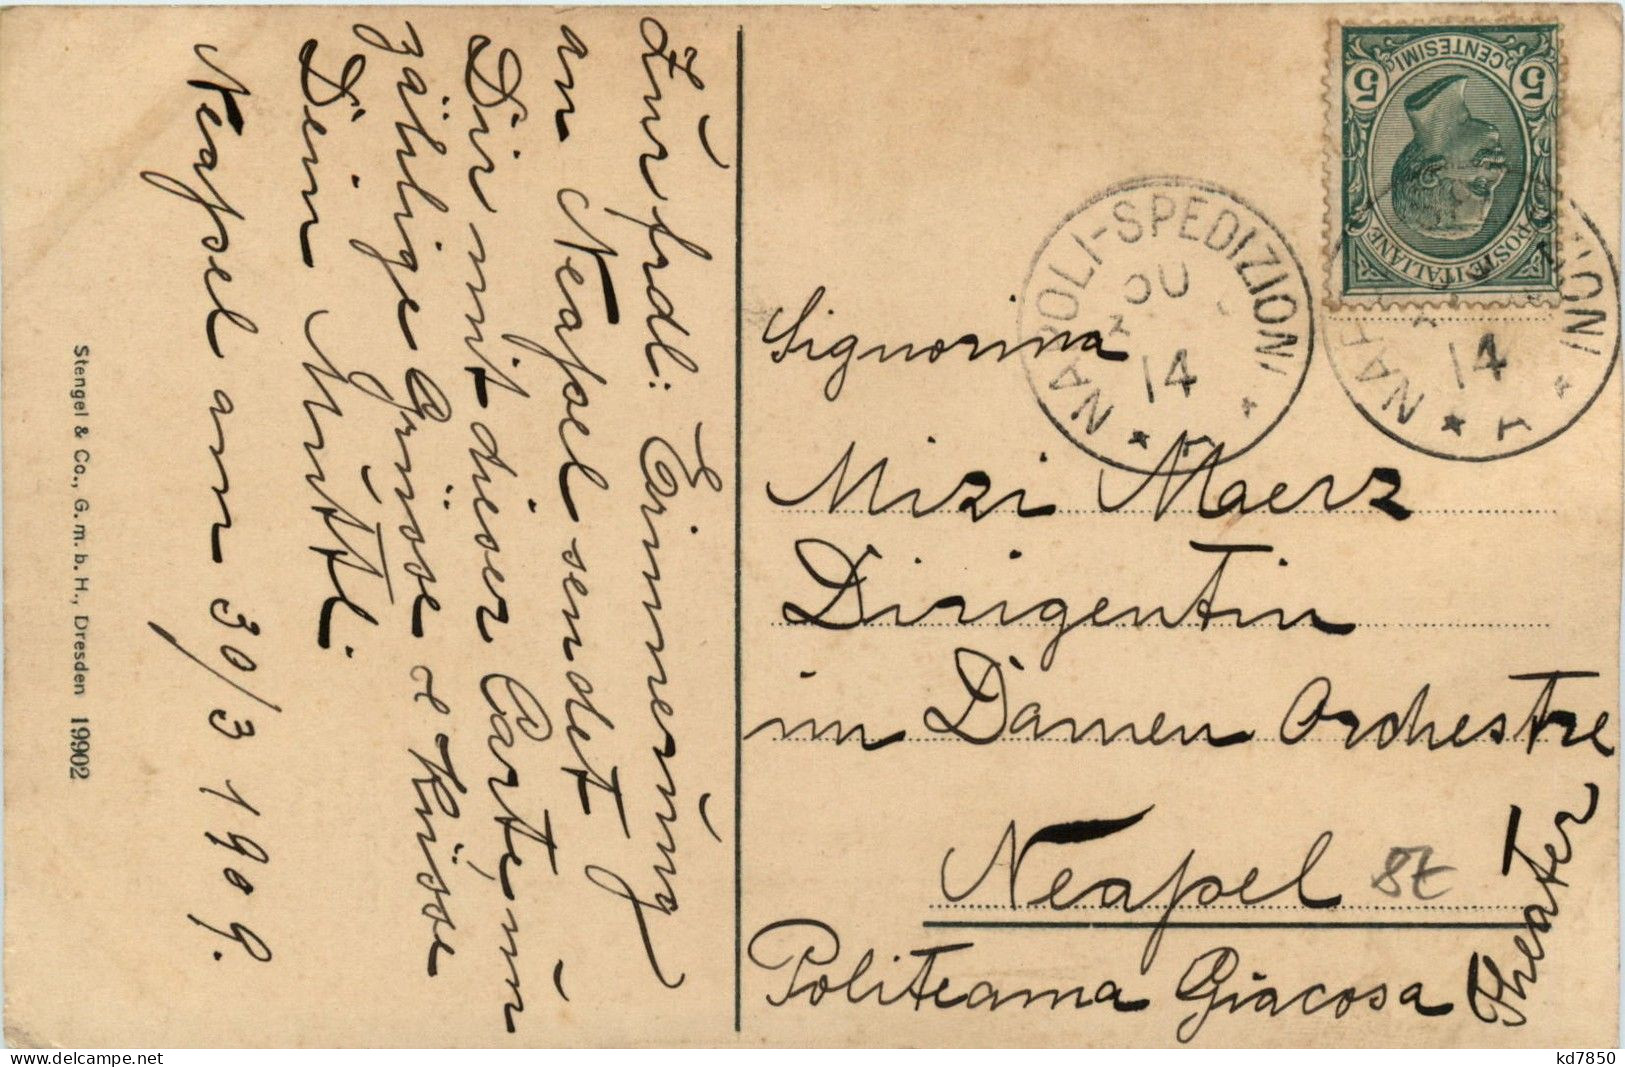 Zur frdl: Erinnerung
an Neapel sendet
Dir mit dieser Carte, un
zählige Grüsse & Küsse
Dein Muttl.
Neapel am 30/3 1909.
Stengel & Co., G. m. b. H., Dresden 19902
POSTE ITALIANE
5 5
CENTESIMI
NAPOLI-SPEDIZIONI
14
14
Signorina
Mizi Maerz
Dirigentin
im Damen Orchestre
Neapel
Politeama Giacosa Theater
kd7850